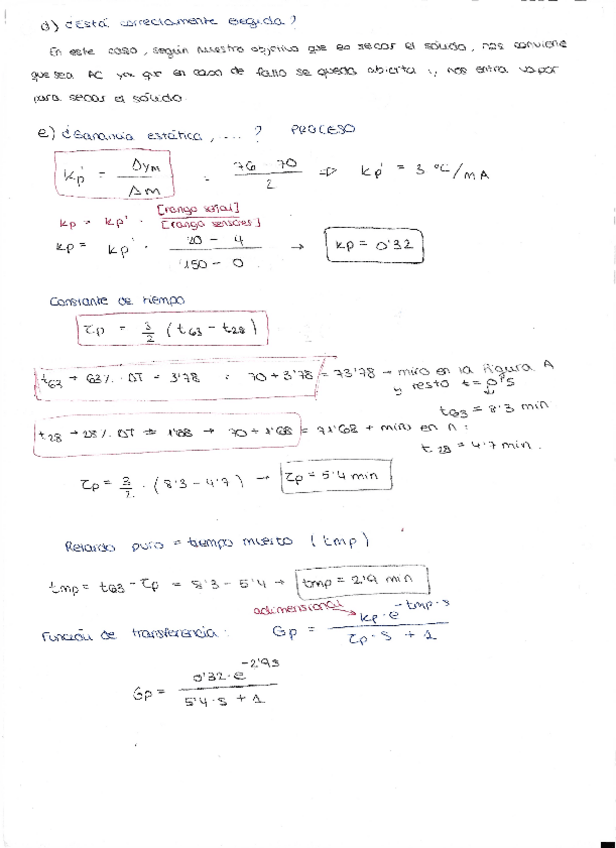 d) ¿Está correctamente elegida?
En este caso, según nuestro objetivo que es secar el sólido, nos conviene
que sea AC ya que en caso de fallo se queda abierta y nos entra vapor
para secar el sólido.
e) ¿Ganancia estática, ....? PROCESO
Kp' = ΔYm / Δm = 76 - 70 / 2 ⇒ Kp' = 3 ºC/mA
Kp = Kp' · [rango señal] / [rango sensores]
Kp = Kp' · 20 - 4 / 150 - 0 → Kp = 0'32
Constante de tiempo
τp = 3/2 (t63 - t28)
t63 → 63% · DT = 3'78 : 70 + 3'78 = 73'78 → miro en la figura A
y resto t = 0'5
t63 = 8'3 min
t28 → 28% DT ⇒ 1'68 → 70 + 1'68 = 71'68 → miro en n:
t28 = 4'7 min.
τp = 3/2 · (8'3 - 4'7) → τp = 5'4 min
Retardo puro = tiempo muerto (tmp)
tmp = t63 - τp = 8'3 - 5'4 → tmp = 2'9 min
adimensional
Función de transferencia: Gp = Kp · e^-tmp·s / τp · s + 1
Gp = 0'32 · e^-2'9s / 5'4 · s + 1